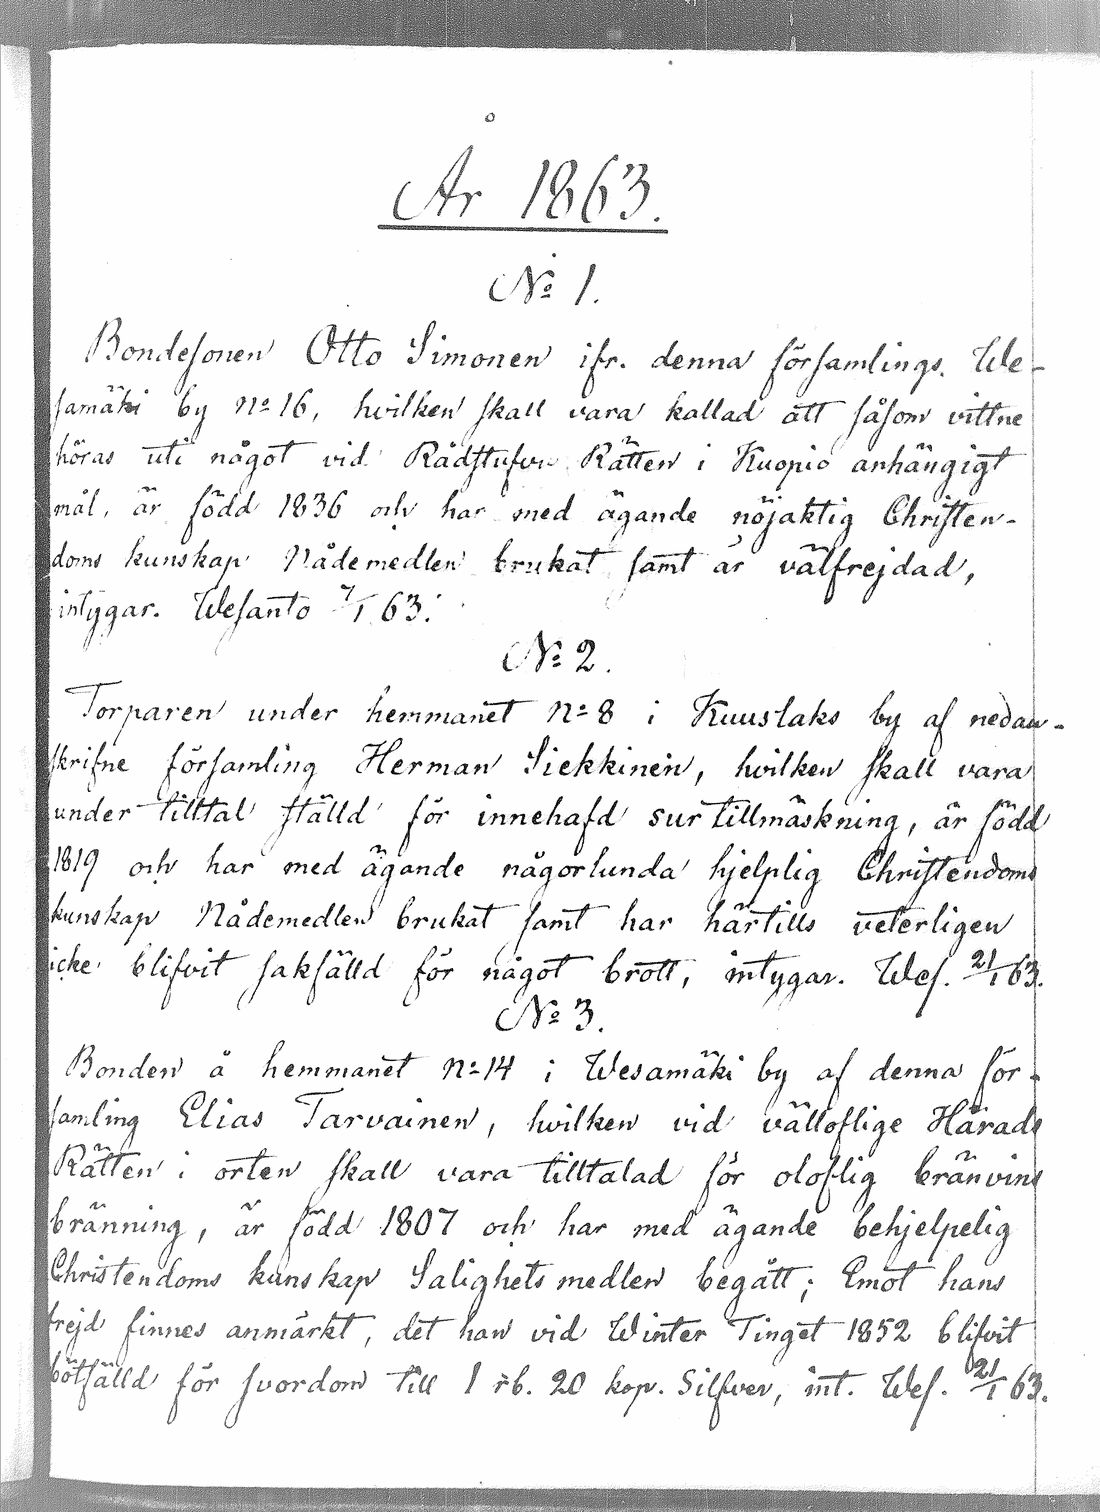 År 1863.
No 1.
Bondesonen Otto Simonen ifr. denna församlings. We-
samäki by No 16, hvilken skall vara kallad att såsom vittne
höras uti något vid Rådstufvu Rätten i Kuopio anhängigt
mål, är född 1836 och har med ägande nöjaktig Christen-
doms kunskap Nådemedlen brukat samt är välfrejdad,
intygar. Wesanto 7/1 63.
No 2.
Torparen under hemmanet No 8 i Kuuslaks by af nedan-
skrifne församling Herman Siekkinen, hvilken skall vara
under tilltal ställd för innehafd sur tillmäskning, är född
1819 och har med ägande någorlunda hjelplig Christendoms
kunskap Nådemedlen brukat samt har härtills veterligen
icke blifvit sakfälld för något brott, intygar. Wes. 21/1 63.
No 3.
Bonden å hemmanet No 14 i Wesamäki by af denna för-
samling Elias Tarvainen, hvilken vid välloflige Härads
Rätten i orten skall vara tilltalad för oloflig bränvins
bränning, är född 1807 och har med ägande behjelpelig
Christendoms kunskap Salighets medlen begått; Emot hans
frejd finnes anmärkt, det han vid Winter Tinget 1852 blifvit
bötfälld för svordom till 1 rb. 20 kop. Silfver, int. Wes. 21/1 63.